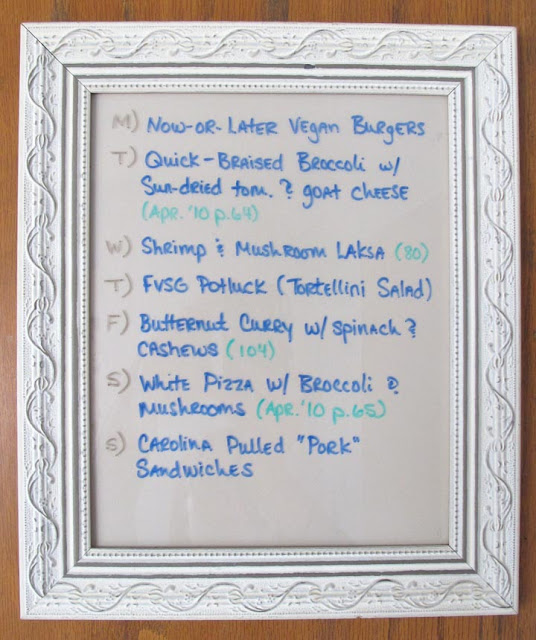 M) Now-or-Later Vegan Burgers
T) Quick-Braised Broccoli w/
Sun-dried tom. & goat cheese
(Apr. '10 p.64)
W) Shrimp & Mushroom Laksa (80)
T) FVSG Potluck (Tortellini Salad)
F) Butternut Curry w/ spinach &
cashews (104)
S) White Pizza w/ Broccoli &
mushrooms (Apr. '10 p.65)
S) Carolina Pulled "Pork"
Sandwiches